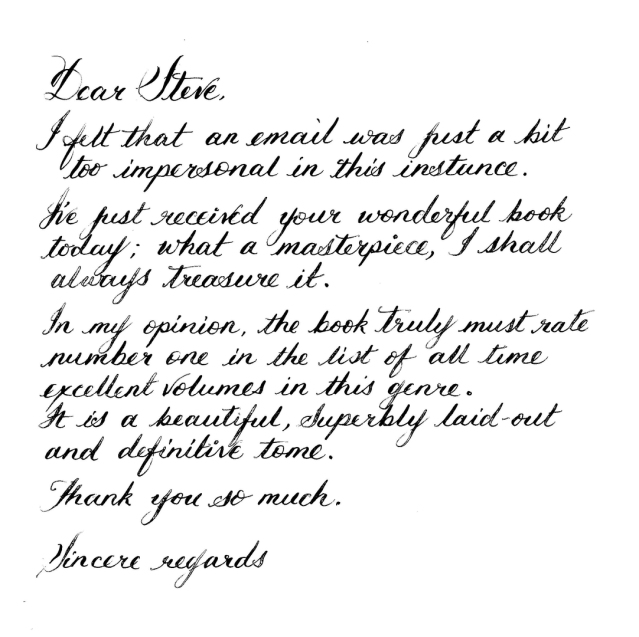 Dear Steve,
I felt that an email was just a bit
too impersonal in this instance.
I've just received your wonderful book
today; what a masterpiece, I shall
always treasure it.
In my opinion, the book truly must rate
number one in the list of all time
excellent volumes in this genre.
It is a beautiful, superbly laid-out
and definitive tome.
Thank you so much.
Sincere regards